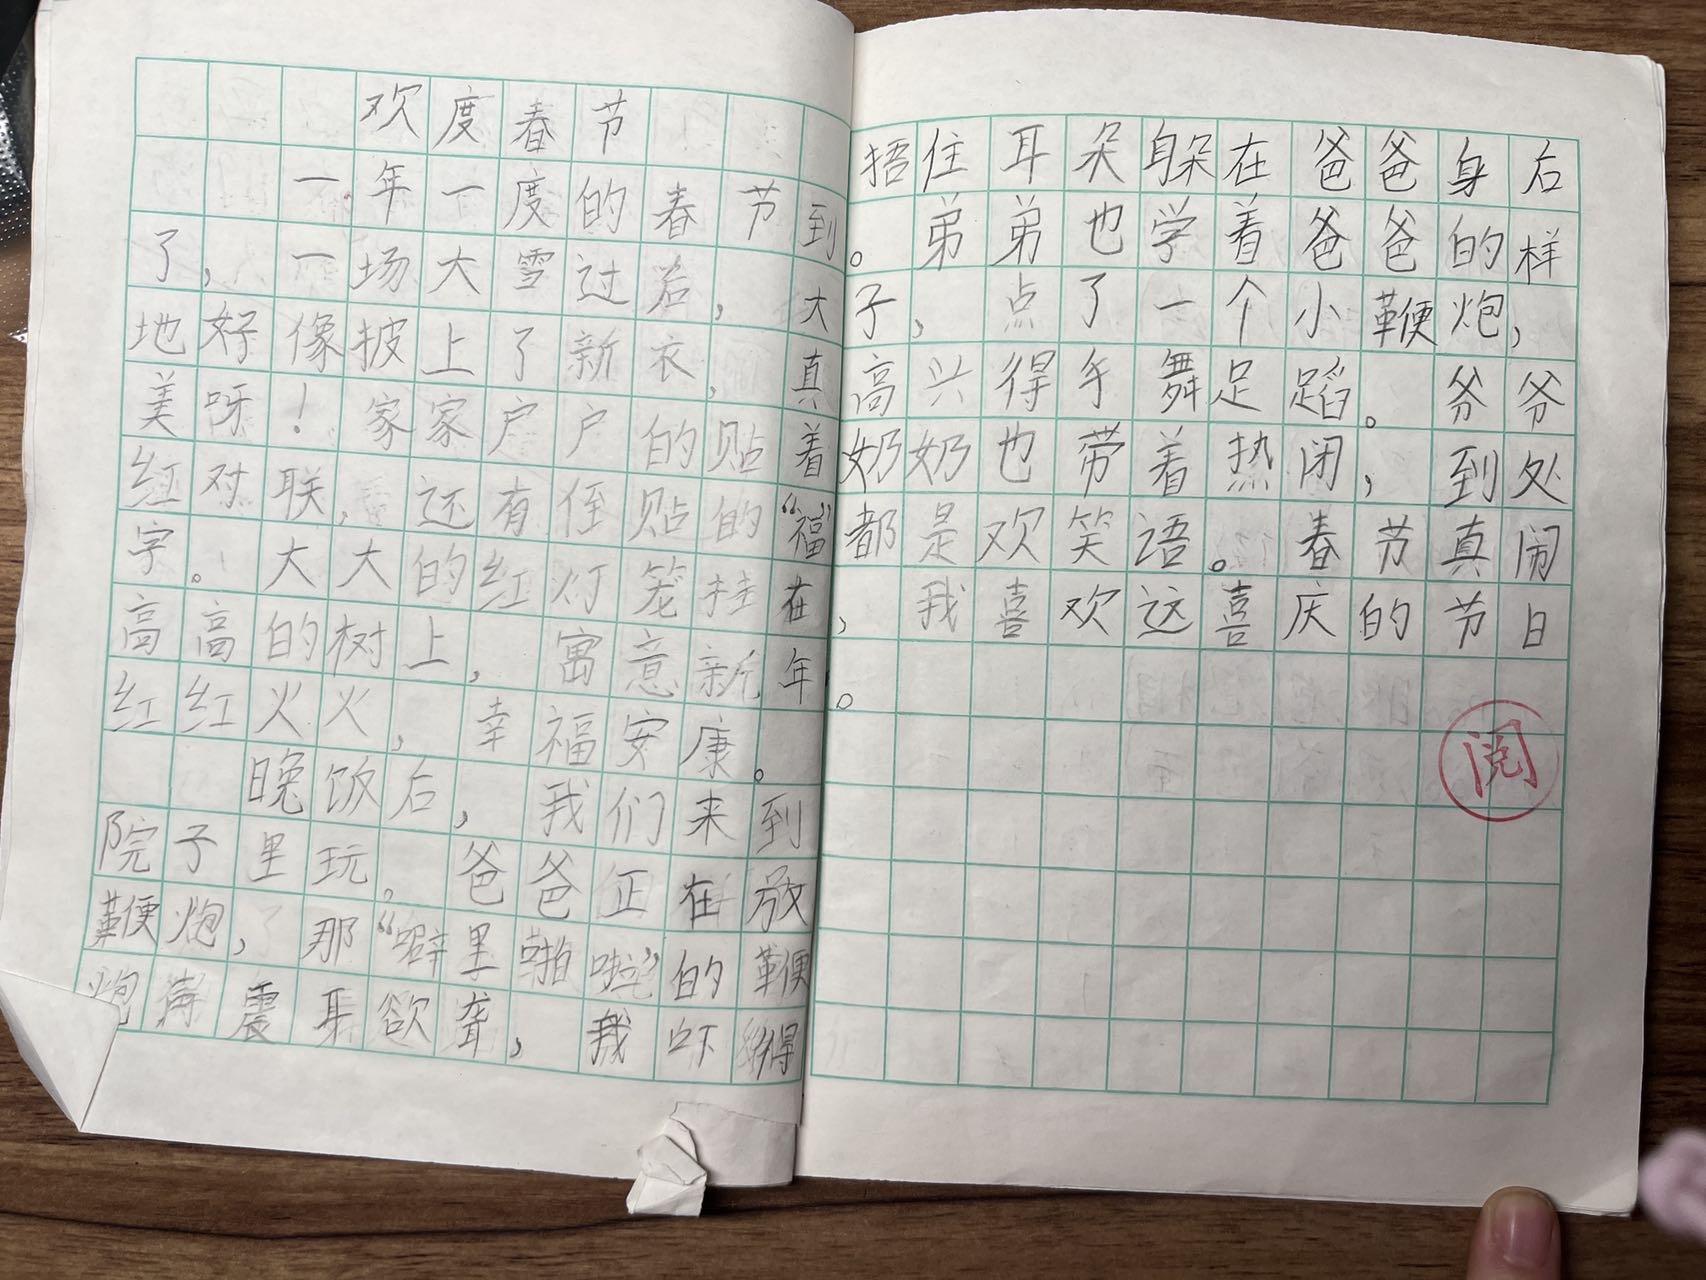 欢度春节
一年一度的春节到
了，一场大雪过后，大
地好像披上了新衣，真
美呀！家家户户的贴着
红对联，还有侄贴的“福”
字。大大的红灯笼挂在
高高的树上，寓意新年
红红火火，幸福安康。
晚饭后，我们来到
院子里玩。爸爸正在放
鞭炮，那“噼里啪啦”的鞭
炮震耳欲聋，我吓得
捂住耳朵躲在爸爸身后
。弟弟也学着爸爸的样
子，点了一个小鞭炮，
高兴得手舞足蹈。爷爷
奶奶也带着热闭，到处
都是欢笑语。春节真闹
，我喜欢这喜庆的节日
。
阅